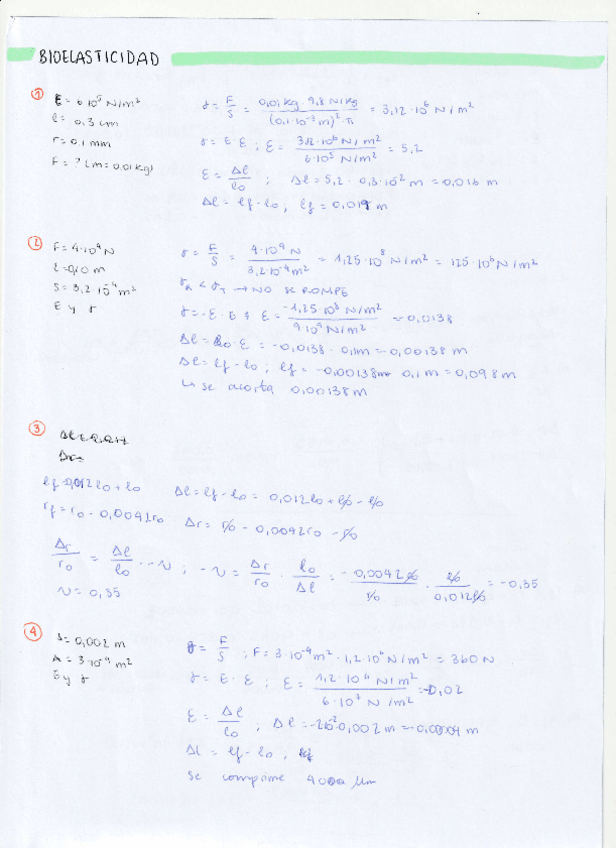 BIOELASTICIDAD
① E = 6·10⁵ N/m²
l = 0,3 cm
r = 0,1 mm
F = ? (m = 0,01 kg)
σ = F/S = 0,01 kg · 9,8 N/kg / (0,1·10⁻³ m)²·π = 3,12·10⁶ N/m²
σ = E·ε ; ε = 3,12·10⁶ N/m² / 6·10⁵ N/m² = 5,2
ε = Δl/l₀ ; Δl = 5,2 · 0,3·10⁻² m = 0,016 m
Δl = lf - l₀, lf = 0,019 m
② F = 4·10⁴ N
l = 0,10 m
S = 3,2·10⁻⁴ m²
E y σ
σ = F/S = 4·10⁴ N / 3,2·10⁻⁴ m² = 1,25·10⁸ N/m² = 125·10⁶ N/m²
→ NO SE ROMPE
σ = -E·ε ; ε = -1,25·10⁸ N/m² / 9·10⁹ N/m² = -0,0138
Δl = l₀·ε = -0,0138 · 0,1m = -0,00138 m
Δl = lf - l₀ ; lf = -0,00138m 0,1 m = 0,098 m
↳ se acorta 0,00138 m
③
lf = 0,012 l₀ + l₀ Δl = lf - l₀ = 0,012 l₀ + l₀ - l₀
rf = r₀ - 0,0042 r₀ Δr = r₀ - 0,0042 r₀ - r₀
Δr/r₀ = Δl/l₀ · -ν ; -ν = Δr/r₀ · l₀/Δl = -0,0042 r₀/r₀ · l₀/0,012 l₀ = -0,35
ν = 0,35
④ S = 0,002 m
A = 3·10⁻⁴ m²
E y σ
σ = F/S ; F = 3·10⁻⁴ m² · 1,2·10⁶ N/m² = 360 N
σ = E·ε ; ε = 1,2·10⁶ N/m² / 6·10⁷ N/m² = -0,02
ε = Δl/l₀ ; Δl = -2·10⁻²·0,002 m = -0,00004 m
Δl = lf - l₀ ,
se comprime μm